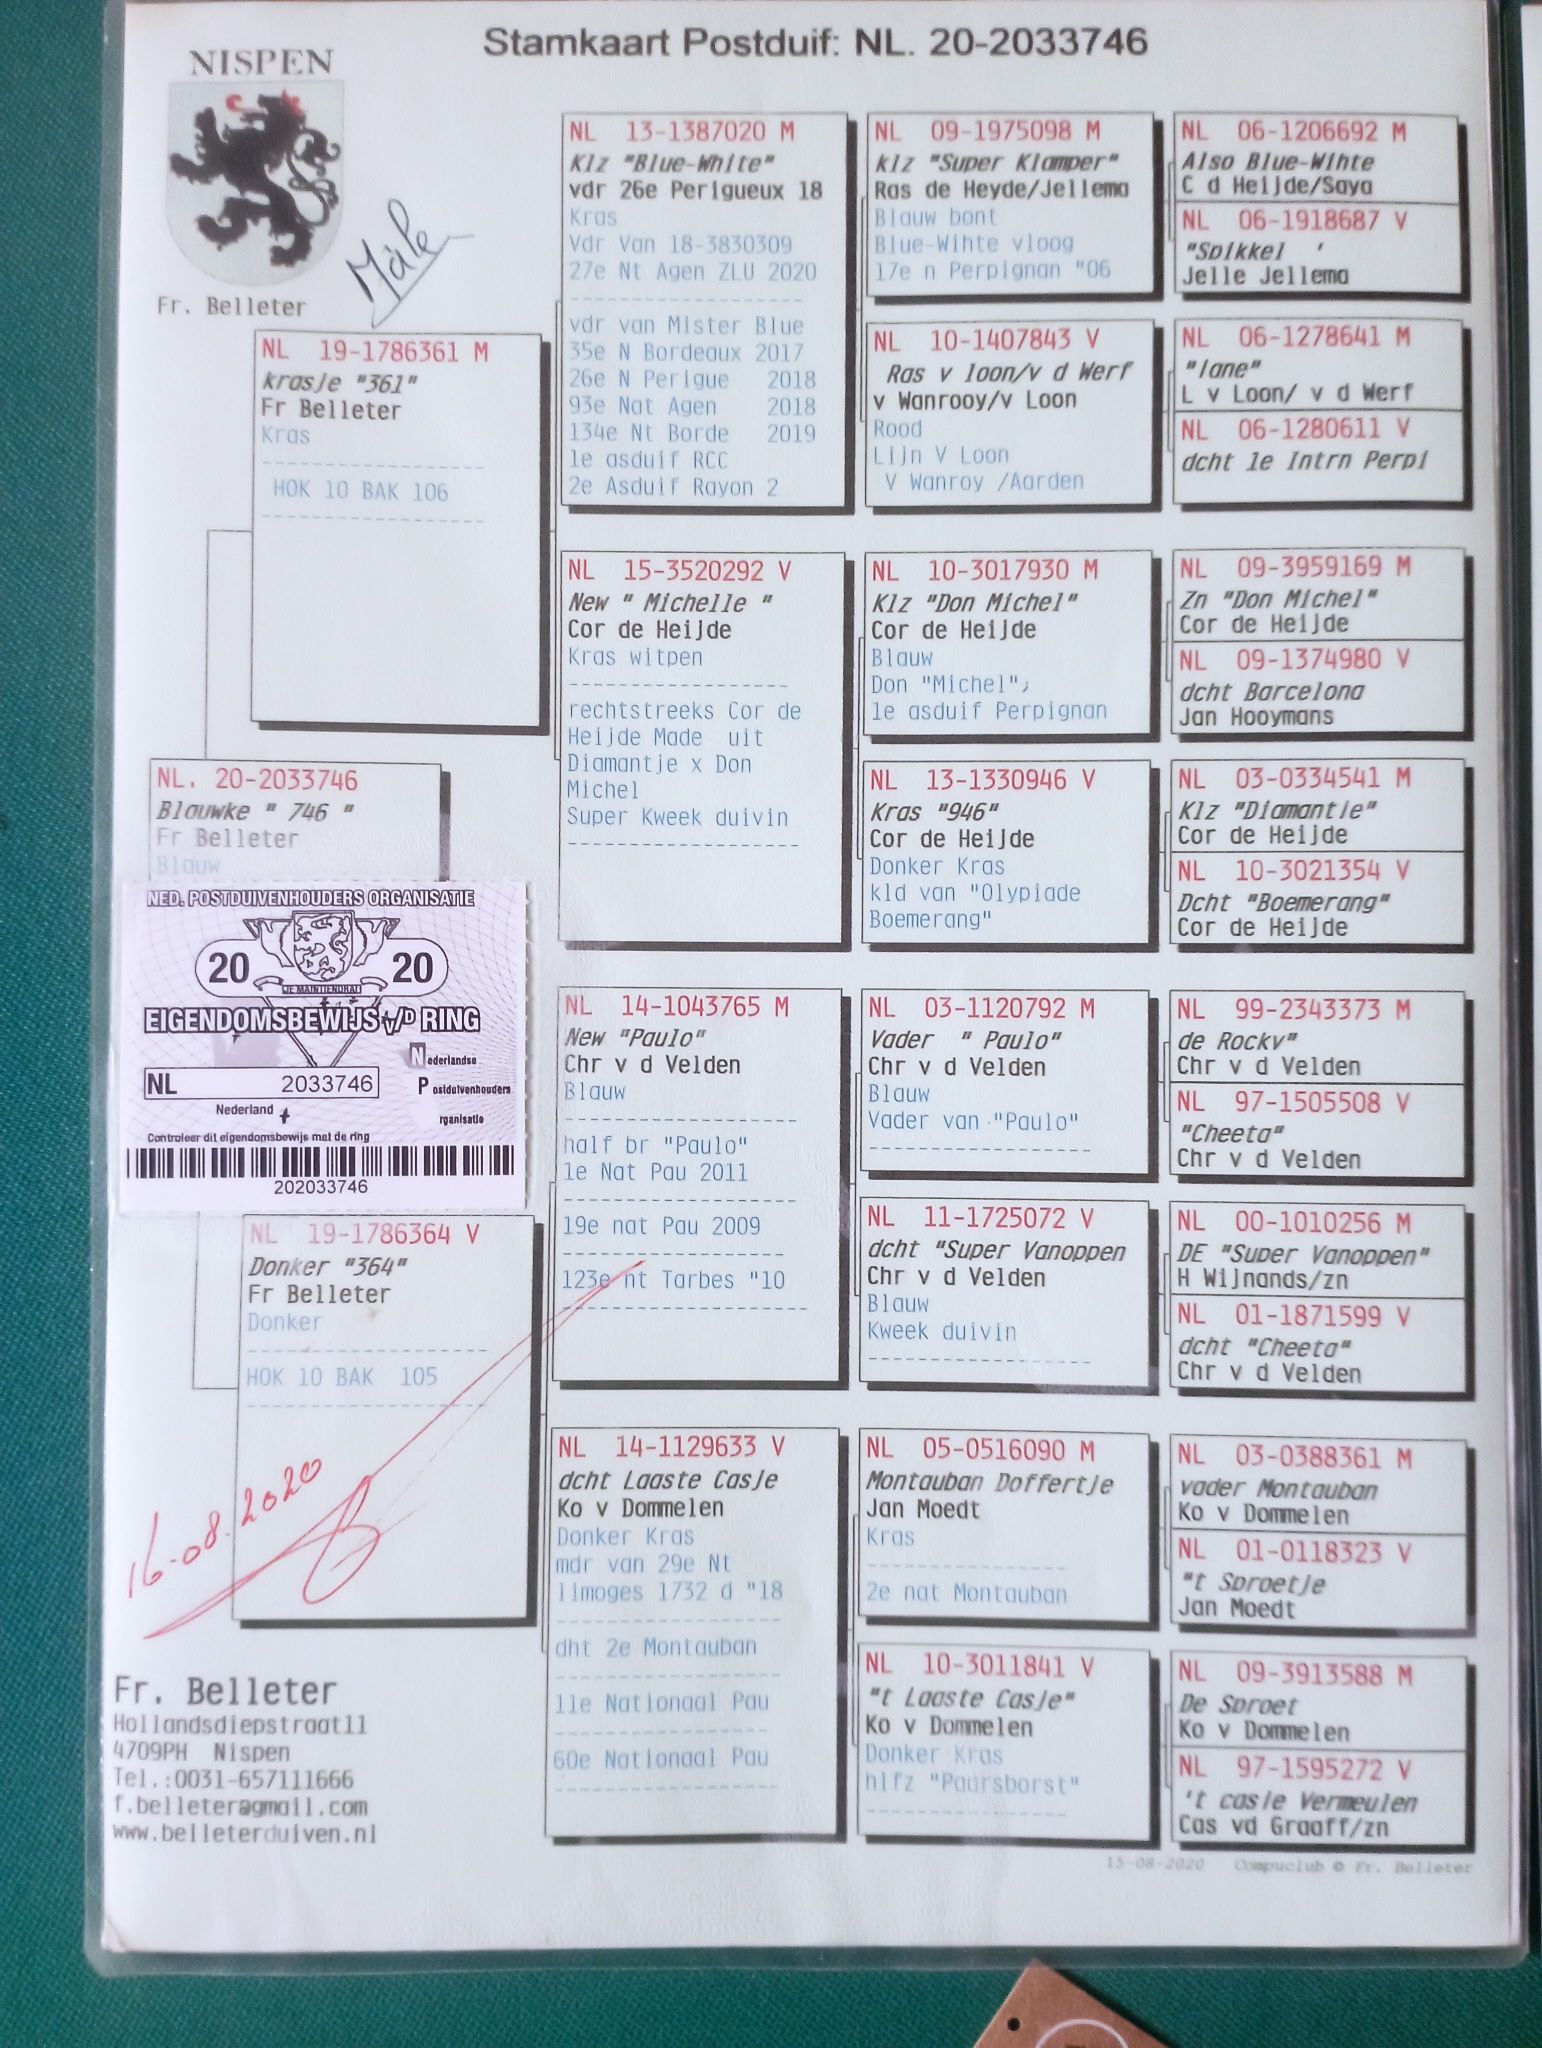 Stamkaart Postduif: NL. 20-2033746
NISPEN
Male
Fr. Belleter
NL 19-1786361 M
krasje "361"
Fr Belleter
Kras
HOK 10 BAK 106
NL. 20-2033746
Blauwke " 746 "
Fr Belleter
Blauw
NED. POSTDUIVENHOUDERS ORGANISATIE
20
20
JE MAINTIENDRAI
EIGENDOMSBEWIJS v/D RING
Nederlandse
NL 2033746
Postduivenhouders
Nederland
rganisatie
Controleer dit eigendomsbewijs met de ring
202033746
NL 19-1786364 V
Donker "364"
Fr Belleter
Donker
HOK 10 BAK 105
16-08-2020
Fr. Belleter
Hollandsdiepstraat11
4709PH Nispen
Tel.:0031-657111666
f.belleter@gmail.com
www.belleterduiven.nl
NL 13-1387020 M
Klz "Blue-White"
vdr 26e Perigueux 18
Kras
Vdr Van 18-3830309
27e Nt Agen ZLU 2020
vdr van Mister Blue
35e N Bordeaux 2017
26e N Perigue 2018
93e Nat Agen 2018
134e Nt Borde 2019
1e asduif RCC
2e Asduif Rayon 2
NL 15-3520292 V
New " Michelle "
Cor de Heijde
Kras witpen
rechtstreeks Cor de
Heijde Made uit
Diamantje x Don
Michel
Super Kweek duivin
NL 14-1043765 M
New "Paulo"
Chr v d Velden
Blauw
half br "Paulo"
1e Nat Pau 2011
19e nat Pau 2009
123e nt Tarbes "10
NL 14-1129633 V
dcht Laaste Casje
Ko v Dommelen
Donker Kras
mdr van 29e Nt
limoges 1732 d "18
dht 2e Montauban
11e Nationaal Pau
60e Nationaal Pau
NL 09-1975098 M
klz "Super Klamper"
Ras de Heyde/Jellema
Blauw bont
Blue-Wihte vloog
17e n Perpignan "06
NL 10-1407843 V
Ras v loon/v d Werf
v Wanrooy/v Loon
Rood
Lijn V Loon
V Wanroy /Aarden
NL 10-3017930 M
Klz "Don Michel"
Cor de Heijde
Blauw
Don "Michel",
1e asduif Perpignan
NL 13-1330946 V
Kras "946"
Cor de Heijde
Donker Kras
kld van "Olypiade
Boemerang"
NL 03-1120792 M
Vader " Paulo"
Chr v d Velden
Blauw
Vader van "Paulo"
NL 11-1725072 V
dcht "Super Vanoppen
Chr v d Velden
Blauw
Kweek duivin
NL 05-0516090 M
Montauban Doffertje
Jan Moedt
Kras
2e nat Montauban
NL 10-3011841 V
"t Laaste Casje"
Ko v Dommelen
Donker Kras
hlfz "Paarsborst"
NL 06-1206692 M
Also Blue-Wihte
C d Heijde/Saya
NL 06-1918687 V
"Spikkel '
Jelle Jellema
NL 06-1278641 M
"Jane"
L v Loon/ v d Werf
NL 06-1280611 V
dcht 1e Intrn Perpi
NL 09-3959169 M
Zn "Don Michel"
Cor de Heijde
NL 09-1374980 V
dcht Barcelona
Jan Hooymans
NL 03-0334541 M
Klz "Diamantje"
Cor de Heijde
NL 10-3021354 V
Dcht "Boemerang"
Cor de Heijde
NL 99-2343373 M
de Rocky"
Chr v d Velden
NL 97-1505508 V
"Cheeta"
Chr v d Velden
NL 00-1010256 M
DE "Super Vanoppen"
H Wijnands/zn
NL 01-1871599 V
dcht "Cheeta"
Chr v d Velden
NL 03-0388361 M
vader Montauban
Ko v Dommelen
NL 01-0118323 V
"t Sproetje
Jan Moedt
NL 09-3913588 M
De Sproet
Ko v Dommelen
NL 97-1595272 V
't casje Vermeulen
Cas vd Graaff/zn
15-08-2020 Compuclub © Fr. Belleter